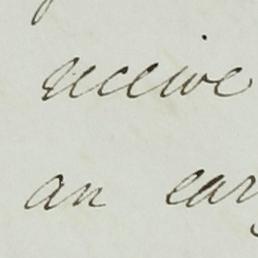 receive
an ear